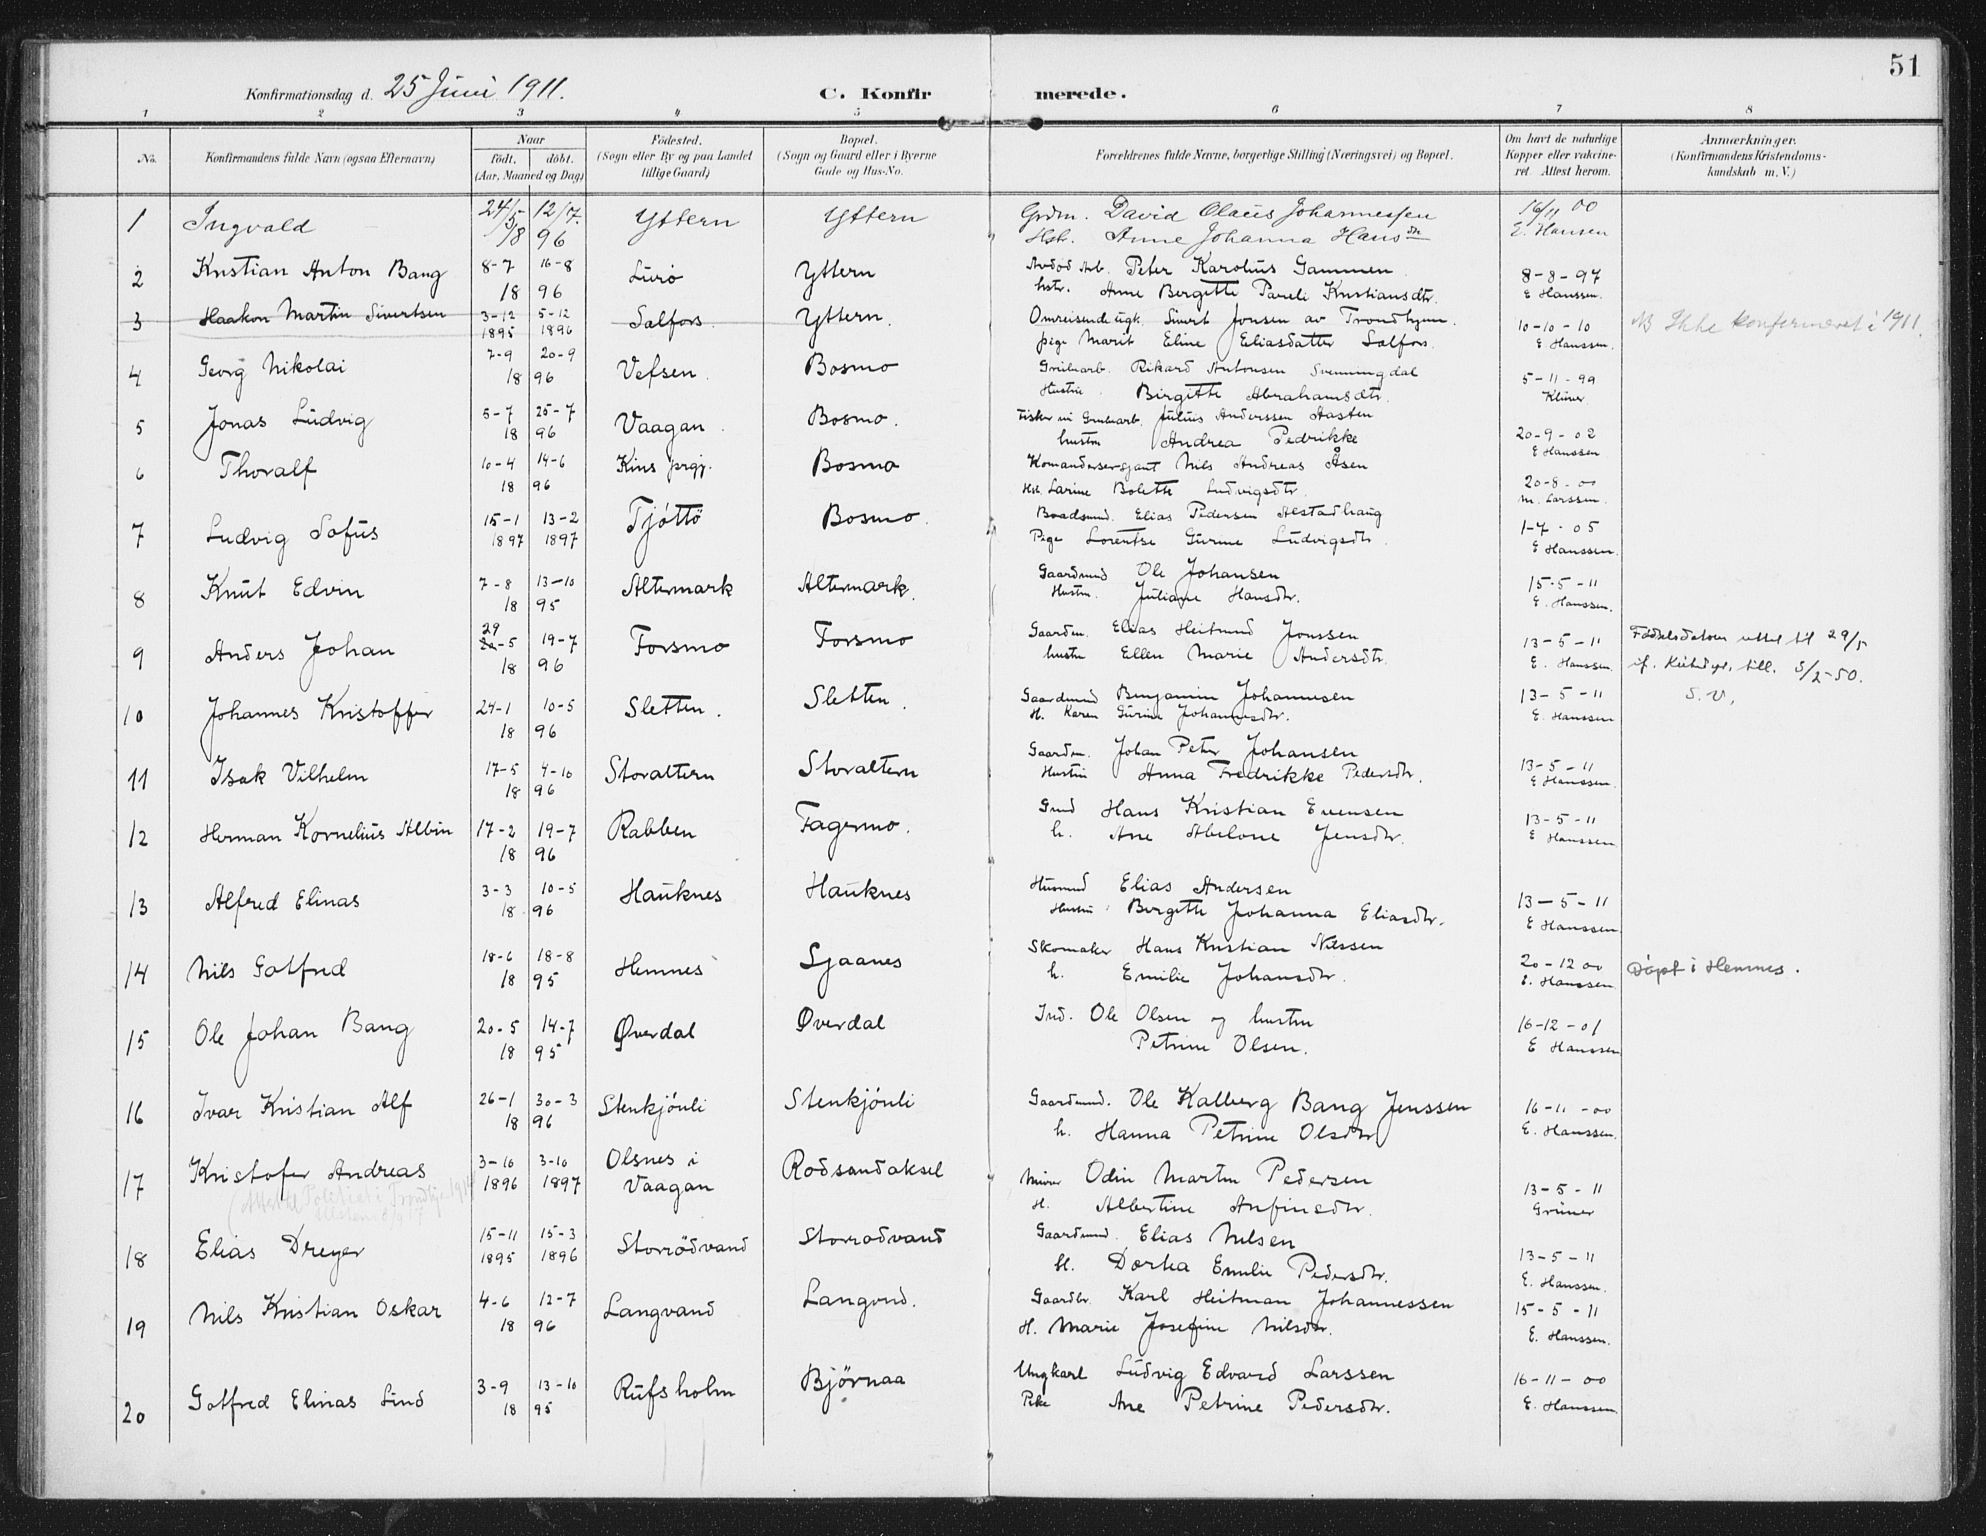 51
Konfirmationsdag d. 25 Juni 1911. C. Konfirmerede.
1 2 3 4 5 6 7 8
No. Konfirmandens fulde Navn (ogsaa Efternavn) Naar födt. döbt. (Aar, Maaned og Dag) Födested. (Sogn eller By og paa Landet tillige Gaard) Bopæl. (Sogn og Gaard eller i Byerne Gade og Hus-No. Forældrenes fulde Navne, borgerlige Stilling (Næringsvei) og Bopæl. Om havt de naturlige Kopper eller vakcineret. Attest herom. Anmærkninger. (Konfirmandens Kristendomskundskab m. V.)
1 Ingvald 24/5 12/7 Yttern Yttern Grdm. David Olaus Johannessen 16/11 00
18 96 Hst. Anne Johanna Hansdtr E. Hansen
2 Kristian Anton Bang 8-7 16-8 Lurö Yttern Peter Karolius Gammen 8-8-97
18 96 hstr. Anne Bergitte Pareli Kristiansdtr. E Hanssen.
3 Haakon Martin Sivertsen 3-12 5-12 Salfors Yttern. Omreisende ugk. Sivert Jonsen av Trondhjem. 10-10-10 NB Ikke konfirmeret i 1911.
1895 1896 pige Marit Eline Eliasdatter Salfors. E Hanssen.
4 Georg Nikolai 7-9 20-9 Vefsen. Bosmo Grubearb. Rikard Antonsen Svenningdal 5-11-99
18 96 Hustru Birgitte Abrahamsdtr. Klüver
5 Jonas Ludvig 5-7 25-7 Vaagan. Bosmo. Julius Anderssen Hasten 20-9-02
18 96 hustru Andrea Pedrikke E Hanssen
6 Thoralf 10-4 14-6 Kins prgj. Bosmo Komandersergjant Nils Andreas Åsen 20-8-00
18 96 Hst. Larine Bolette Ludvigsdtr. M. Larssen.
7 Ludvig Sofus 15-1 13-2 Tjöttö Bosmo. Baadsmd. Elias Pedersen Alstadhaug 1-7-05
1897 1897 Pige Lorentse Gurine Ludvigsdtr. E Hanssen.
8 Knut Edvin 7-8 13-10 Altermark Altermark. Gaardmd Ole Johansen 15-5-11
18 95 Hustru. Juliane Hansdtr. E. Hanssen.
9 Anders Johan 29-5 19-7 Forsmo Forsmo Gaardm. Elias Heitmnd Jonssen 13-5-11 Fødselsdatoen rettet til 29/5
18 96 hustr Ellen Marie Andersdtr. E. Hanssen. till. 3/2-50.
S.V.
10 Johannes Kristoffer 24-1 10-5 Sletten. Sletten. Gaardmnd Benjamin Johannesen 13-5-11
18 96 H. Karen Gurine Johannesdtr. E. Hanssen
11 Isak Vilhelm 17-5 4-10 Storaltern Storaltern Gaardm. Johan Peter Johansen 13-5-11
18 96 Hustru Anna Fredrikke Pedersdtr. E Hanssen.
12 Herman Kornelius Albin 17-2 19-7 Rabben Fagermo. Gmd Hans Kristian Evensen 13-5-11
18 96 h. Ane Abelone Jensdtr. E Hanssen
13 Alfred Elinas 3-3 10-5 Hauknes Hauknes Husmnd Elias Andersen 13-5-11
18 96 Hustru Bergitte Johanna Eliasdtr. E Hanssen.
14 Nils Gotfred 18-6 18-8 Hemnes Sjaanes Skomaker Hans Kristian Nilssen 20-12 00 Döpt i Hemnes.
18 95 h. Emilie Johansdtr. E. Hanssen
15 Ole Johan Bang 20-5 14-7 Øverdal Øverdal Ind. Ole Olsen og hustru 16-12-01
18 95 Petrine Olsen. E Hanssen
16 Ivar Kristian Alf 26-1 30-3 Stenkjönli Stenkjönli Gaardmnd. Ole Kalberg Bang Jenssen 16-11-00
18 96 h. Hanna Petrine Olsdtr E. Hanssen.
17 Kristofer Andreas 3-10 3-10 Olsnes i Vaagan Rodsandaksel Minør Odin Martin Pedersen 13-5-11
1896 1897 H. Albertine Anfinsdtr. Grüner
18 Elias Dreyer 15-11 15-3 Storrödvand Storrodvand Gaardmnd. Elias Nilsen 13-5-11
1895 1896 H. Dorthea Emilie Pedersdtr. E. Hanssen.
19 Nils Kristian Oskar 4-6 12-7 Langvand Langvnd. Gaardbr. Karl Heitman Johannessen 15-5-11
18 96 H. Marie Josefine Nilsdtr. E. Hanssen.
20 Gotfred Elinas Lind 3-9 13-10 Rufsholm Bjørnaa Ungkarl Ludvig Edvard Larssen 16-11-00
18 95 Pike Ane Petrine Pedersdtr. E. Hanssen